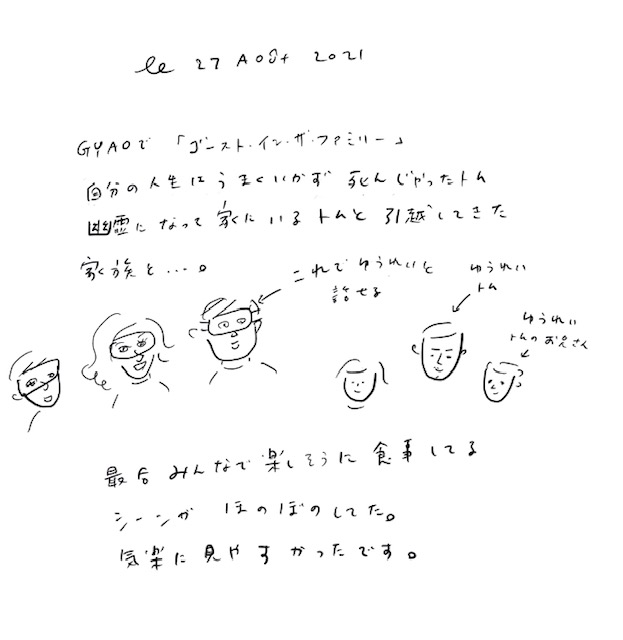 le 27 AOÛt 2021
GYAOで「ゴースト・イン・ザ・ファミリー」
自分の人生にうまくいかず 死んじゃったトム
幽霊になって家にいるトムと引越してきた
家族と…。
これでゆうれいと
話せる
ゆうれい
トム
ゆうれい
トムのお兄さん
最后みんなで楽しそうに食事してる
シーンが ほのぼのしてた。
気楽に見やすかったです。